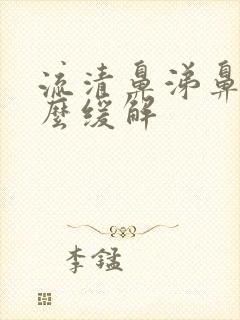 流清鼻涕鼻
麼缓解
李錳